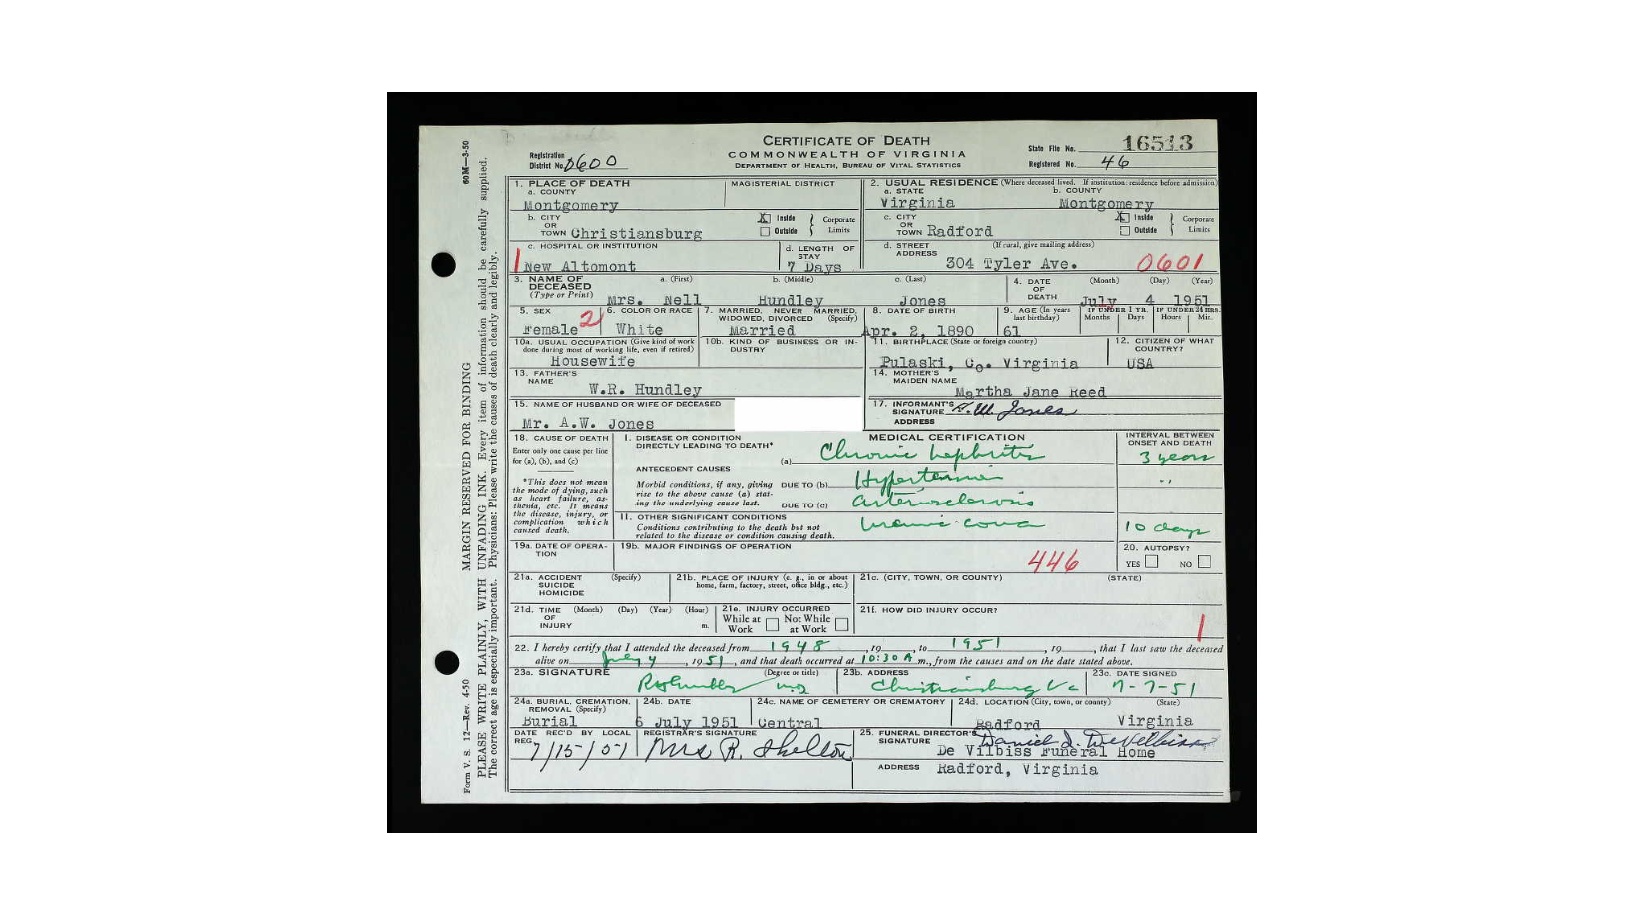 CERTIFICATE OF DEATH
COMMONWEALTH OF VIRGINIA
DEPARTMENT OF HEALTH, BUREAU OF VITAL STATISTICS
Registration District No. 0600
State File No. 16513
Registered No. 46
60M—3-50
MARGIN RESERVED FOR BINDING
Form V. S. 12—Rev. 4-50
PLEASE WRITE PLAINLY, WITH UNFADING INK. Every item of information should be carefully supplied.
The correct age is especially important. Physicians: Please write the causes of death clearly and legibly.
1. PLACE OF DEATH
a. COUNTY
Montgomery
MAGISTERIAL DISTRICT
2. USUAL RESIDENCE (Where deceased lived. If institution: residence before admission)
a. STATE
Virginia
b. COUNTY
Montgomery
b. CITY OR TOWN Christiansburg
X Inside
Outside
Corporate Limits
c. CITY OR TOWN Radford
X Inside
Outside
Corporate Limits
c. HOSPITAL OR INSTITUTION
1 New Altomont
d. LENGTH OF STAY
7 Days
d. STREET ADDRESS (If rural, give mailing address)
304 Tyler Ave.
0601
3. NAME OF DECEASED (Type or Print)
a. (First)
Mrs. Nell
b. (Middle)
Hundley
c. (Last)
Jones
4. DATE OF DEATH
(Month) (Day) (Year)
July 4 1951
5. SEX
Female
2
6. COLOR OR RACE
White
7. MARRIED, NEVER MARRIED, WIDOWED, DIVORCED (Specify)
Married
8. DATE OF BIRTH
Apr. 2, 1890
9. AGE (In years last birthday)
61
IF UNDER 1 YR.
Months Days
IF UNDER 24 HRS.
Hours Min.
10a. USUAL OCCUPATION (Give kind of work done during most of working life, even if retired)
Housewife
10b. KIND OF BUSINESS OR INDUSTRY
11. BIRTHPLACE (State or foreign country)
Pulaski, Co. Virginia
12. CITIZEN OF WHAT COUNTRY?
USA
13. FATHER'S NAME
W.R. Hundley
14. MOTHER'S MAIDEN NAME
Martha Jane Reed
15. NAME OF HUSBAND OR WIFE OF DECEASED
Mr. A.W. Jones
17. INFORMANT'S SIGNATURE A.W. Jones
ADDRESS
18. CAUSE OF DEATH
Enter only one cause per line for (a), (b), and (c)
*This does not mean the mode of dying, such as heart failure, asthenia, etc. It means the disease, injury, or complication which caused death.
MEDICAL CERTIFICATION
INTERVAL BETWEEN ONSET AND DEATH
I. DISEASE OR CONDITION DIRECTLY LEADING TO DEATH*
(a) Chronic nephritis
3 years
ANTECEDENT CAUSES
Morbid conditions, if any, giving rise to the above cause (a) stating the underlying cause last.
DUE TO (b) Hypertension
DUE TO (c) arteriosclerosis
II. OTHER SIGNIFICANT CONDITIONS
Conditions contributing to the death but not related to the disease or condition causing death.
Uremic coma
10 days
19a. DATE OF OPERATION
19b. MAJOR FINDINGS OF OPERATION
446
20. AUTOPSY?
YES NO
21a. ACCIDENT SUICIDE HOMICIDE (Specify)
21b. PLACE OF INJURY (e. g., in or about home, farm, factory, street, office bldg., etc.)
21c. (CITY, TOWN, OR COUNTY) (STATE)
21d. TIME OF INJURY (Month) (Day) (Year) (Hour) m.
21e. INJURY OCCURRED
While at Work Not While at Work
21f. HOW DID INJURY OCCUR?
1
22. I hereby certify that I attended the deceased from 1948, 19, to 1951, 19, that I last saw the deceased
alive on July 4, 1951, and that death occurred at 10:30 A m., from the causes and on the date stated above.
23a. SIGNATURE (Degree or title)
M.D.
23b. ADDRESS
Christiansburg Va
23c. DATE SIGNED
7-7-51
24a. BURIAL, CREMATION, REMOVAL (Specify)
Burial
24b. DATE
6 July 1951
24c. NAME OF CEMETERY OR CREMATORY
Central
24d. LOCATION (City, town, or county) (State)
Radford Virginia
DATE REC'D BY LOCAL REG.
7/15/51
REGISTRAR'S SIGNATURE
Mrs R. Shelton
25. FUNERAL DIRECTOR'S SIGNATURE Daniel D. DeVilbiss
De Vilbiss Funeral Home
ADDRESS Radford, Virginia